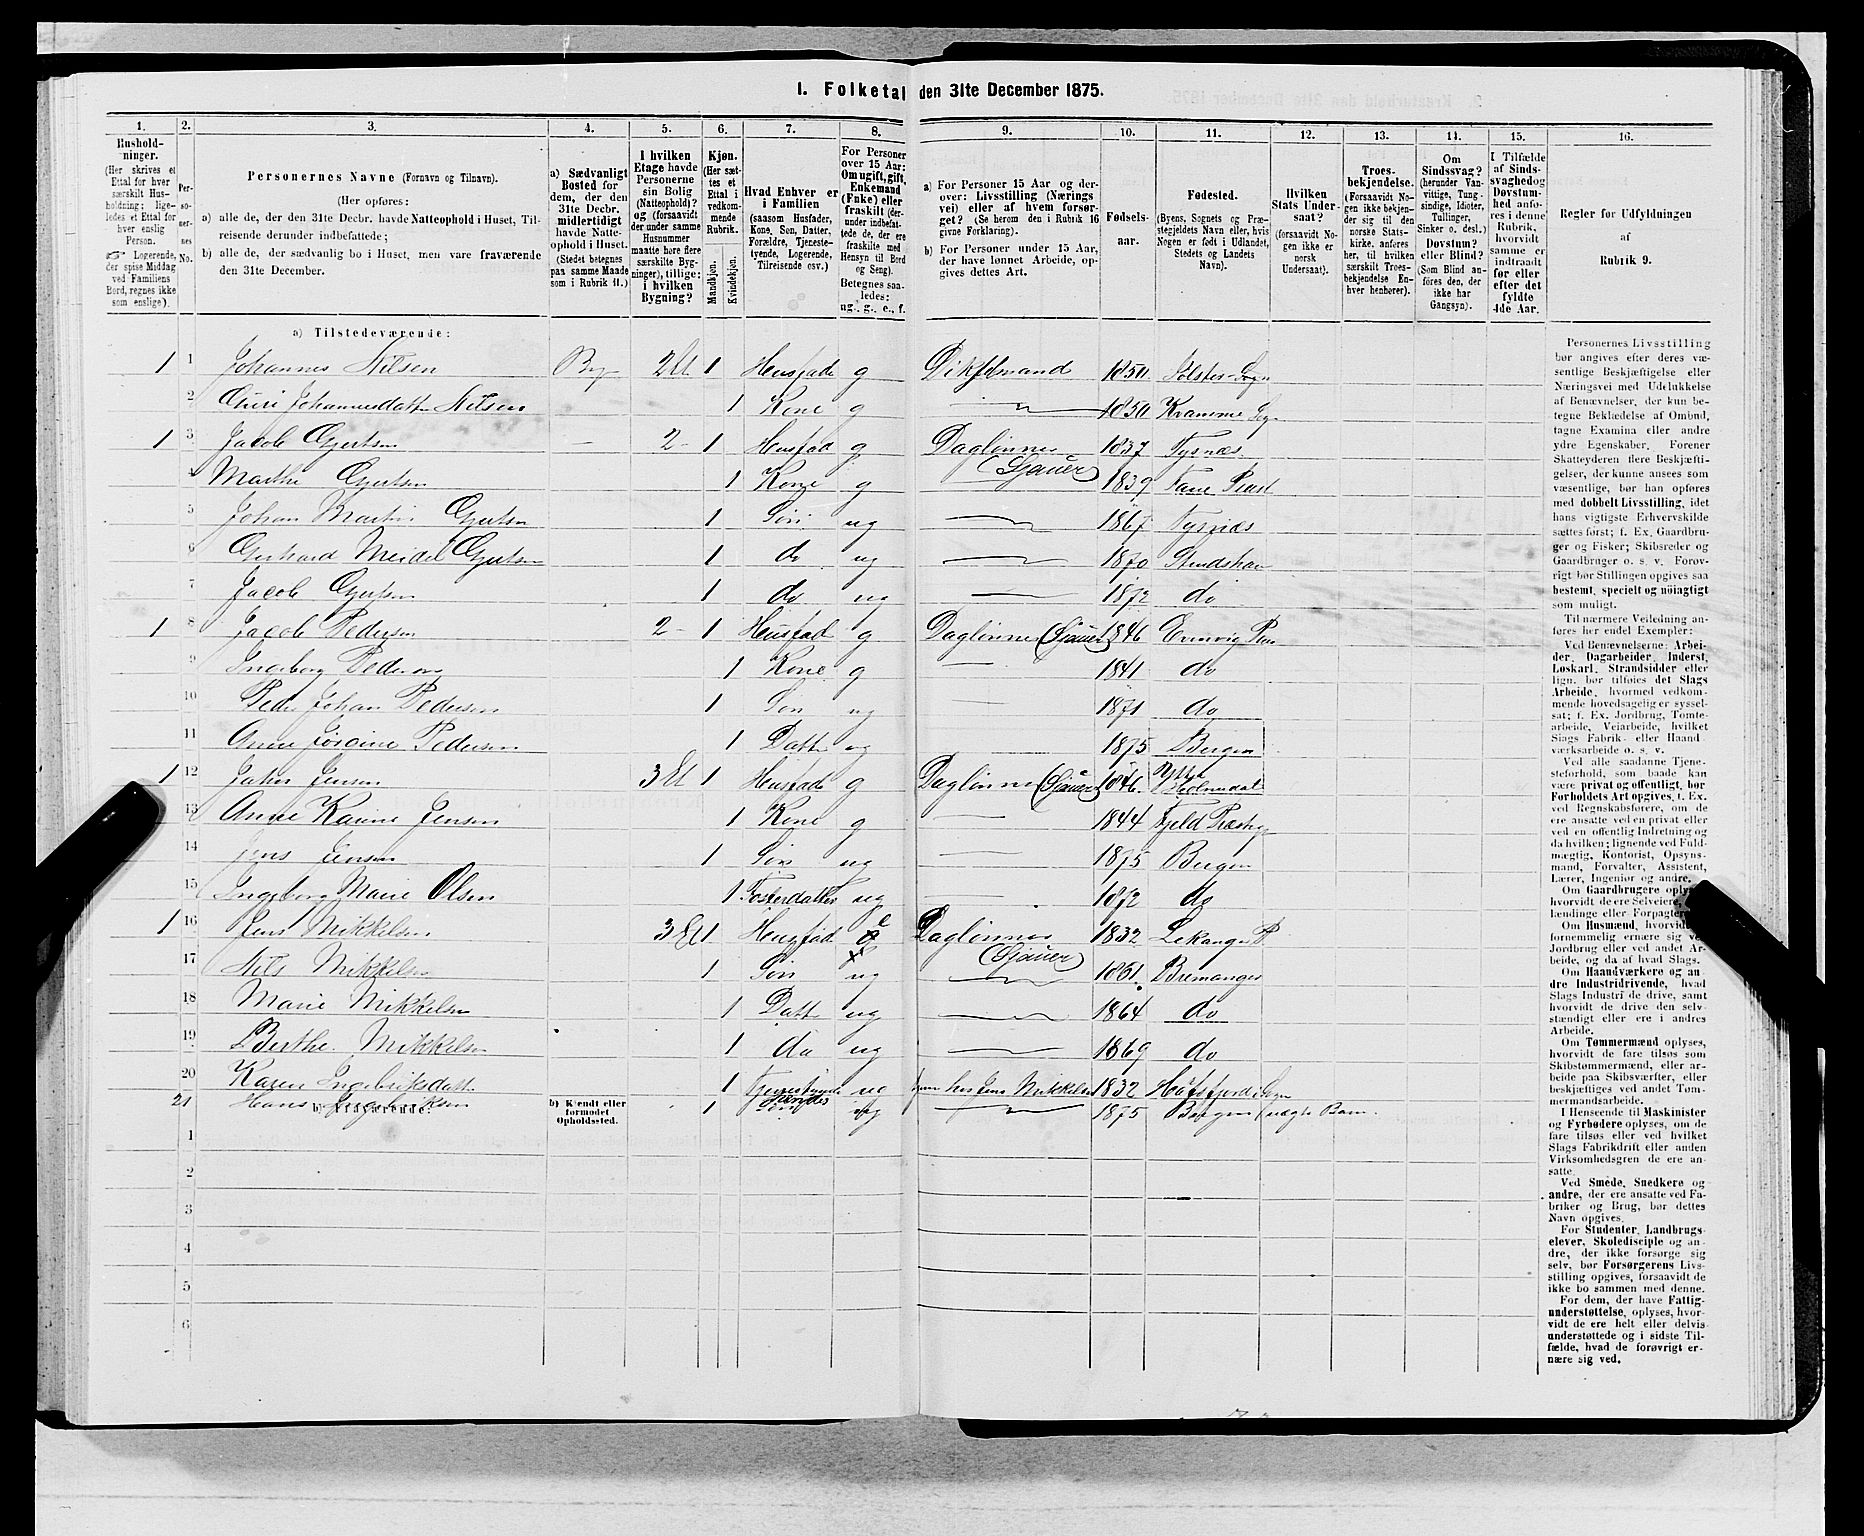 1. Folketal den 31te December 1875.
1. 2. 3. 4. 5. 6. 7. 8. 9. 10. 11. 12. 13. 14. 15. 16.
Husholdninger. (Her skrives et Ettal for hver særskilt Husholdning; ligeledes et Ettal for hver enslig Person. ☞ Logerende, der spise Middag ved Familiens Bord, regnes ikke som enslige).
Personernes No.
Personernes Navne (Fornavn og Tilnavn).
(Her opføres:
a) alle de, der den 31te Decbr. havde Natteophold i Huset, Tilreisende derunder indbefattede;
b) alle de, der sædvanlig bo i Huset, men vare fraværende den 31te December.
a) Sædvanligt Bosted for dem, der den 31te Decbr. midlertidigt havde Natteophold i Huset. (Stedet betegnes paa samme Maade som i Rubrik 11.)
I hvilken Etage havde Personerne sin Bolig (Natteophold)? og (forsaavidt der under samme Husnummer maatte høre flere særskilte Bygninger), tillige: i hvilken Bygning?
Kjøn. (Her sættes et Ettal i vedkommende Rubrik.
Mandkjøn. Kvindekjøn.
Hvad Enhver er i Familien (saasom Husfader, Kone, Søn, Datter, Forældre, Tjenestetyende, Logerende, Tilreisende osv.)
For Personer over 15 Aar: Om ugift, gift, Enkemand (Enke) eller fraskilt (derunder indbefattede de, der ere fraskilte med Hensyn til Bord og Seng). Betegnes saaledes: ug., g., e., f.
a) For Personer 15 Aar og derover: Livsstilling (Næringsvei) eller af hvem forsørget? (Se herom den i Rubrik 16 givne Forklaring).
b) For Personer under 15 Aar, der have lønnet Arbeide, opgives dettes Art.
Fødselsaar.
Fødested. (Byens, Sognets og Præstegjeldets Navn eller, hvis Nogen er født i Udlandet, Stedets og Landets Navn).
Hvilken Stats Undersaat? (forsaavidt Nogen ikke er norsk Undersaat).
Troesbekjendelse. (Forsaavidt Nogen ikke bekjender sig til den norske Statskirke, anføres her, til hvilken særskilt Troesbekjendelse Enhver henhører).
Om Sindssvag? (herunder Vanvittige, Tungsindige, Idioter, Tullinger, Sinker o. desl.) Døvstum? eller Blind? (Som Blind anføres den, der ikke har Gangsyn).
I Tilfælde af Sindssvaghed og Døvstumhed anføres i denne Rubrik, hvorvidt samme er indtraadt før eller efter det fyldte 4de Aar.
Regler for Udfyldningen af Rubrik 9.
a) Tilstedeværende:
1 1 Johannes Nilsen By 2 Et 1 Husfade g 1850 Jølster Sogn
2 Guri Johannesdatter Nilsen 1 Kone g 1850 Sogn
1 3 Jacob Gjertsen — 2- 1 Husfad g Daglønner (Sjauer) 1837 Tysnæs
4 Marthe Gjertsen 1 Kone g 1839 Fane Præst
5 Johan Martin Gjertsen 1 Søn ug 1867 Tysnæs
6 Gerhard Meidel Gjertsen 1 do ug 1870
7 Jacob Gjertsen 1 do ug 1872 do
1 8 Jacob Pedersen 2- 1 Husfad g Daglønner (Sjauer) 1846
9 Ingeborg Pedersen 1 Kone g 1841 do
10 Peder Johan Pedersen 1 Søn ug 1871 do
11 Anne Jørgine Pedersen 1 Datt ug 1875 Bergen
1 12 Jensen 3 Et 1 Husfade g Daglønner (Sjauer) 1846. Ytre Holmedal
13 Anne Karine Jensen 1 Kone g 1844 Fjeld Præstegj
14 Jens Jensen 1 Søn ug 1875 Bergen
15 Ingeborg Marie Olsen 1 Fosterdatter ug 1872 do
1 16 Jens Mikkelsen 3 Et 1 Husfad e Daglønner (Sjauer) 1832 Lekanger P
17 Nils Mikkelsen 1 Søn ug 1861 Bremanger
18 Marie Mikkelsen 1 Datt ug 1864 do
19 Berthe Mikkelsen 1 do ug 1869 do
20 Karen Ingebriktsdatt 1 ug hos Jens Mikkelsen 1832 Sogn
21 Hans Ingebriktsen 1 hendes Søn ug 1875 Bergen uægte Barn.
b) Fraværende:
b) Kjendt eller formodet Opholdssted.
1
2
3
4
5
6
Personernes Livsstilling
bør angives efter deres væ-
sentlige Beskjæftigelse eller
Næringsvei med Udelukkelse
af Benævnelser, der kun be-
tegne Beklædelse af Ombud,
tagne Examina eller andre
ydre Egenskaber. Forener
Skatteyderen flere Beskjæfti-
gelser, der kunne ansees som
væsentlige, bør han opføres
med dobbelt Livsstilling, idet
hans vigtigste Erhvervskilde
sættes først; f. Ex. Gaardbru-
ger og Fisker; Skibsreder og
Gaardbruger o. s. v. Forøv-
rigt bør Stillingen opgives saa
bestemt, specielt og nøiagtigt
som muligt.
Til nærmere Veiledning an-
føres her endel Exempler:
Ved Benævnelserne: Arbei-
der, Dagarbeider, Inderst,
Løskarl, Strandsidder eller
lign. bør tilføies det Slags
Arbeide, hvormed vedkom-
mende hovedsagelig er syssel-
sat; f. Ex. Jordbrug, Tomte-
arbeide, Veiarbeide, hvilket
Slags Fabrik- eller Haand-
værksarbeide o. s. v.
Ved alle saadanne Tjene-
steforhold, som baade kan
være privat og offentlig, bør
Forholdets Art opgives, f. Ex.
ved Regnskabsførere, om de
ere ansatte ved en privat eller
ved en offentlig Indretning og
da hvilken; lignende ved Fuld-
mægtig, Kontorist, Opsyns-
mand, Forvalter, Assistent,
Lærer, Ingeniør og andre.
Om Gaardbrugere oplyses,
hvorvidt de ere Selveiere, Lei-
lændinge eller Forpagtere.
Om Husmænd, hvorvidt de
fornemmelig ernære sig ved
Jordbrug eller ved andet Ar-
beide, og da af hvad Slags.
Om Haandværkere og an-
dre Industridrivende, hvad
Slags Industri de drive, samt
hvorvidt de drive den selv-
stændigt eller ere i andres
Arbeide.
Om Tømmermænd oplyses,
hvorvidt de fare tilsøs som
Skibstømmermænd, eller ar-
beide paa Skibsværfter, eller
beskjæftiges ved andet Tøm-
mermandsarbeide.
I Henseende til Maskinister
og Fyrbødere oplyses, om de
fare tilsøs eller ved hvilket
Slags Fabrikdrift eller anden
Virksomhedsgren de ere an-
satte.
Ved Smede, Snedkere og
andre, der ere ansatte ved Fa-
briker og Brug, bør dettes
Navn opgives.
For Studenter, Landbrugs-
elever, Skoledisciple og an-
dre, der ikke forsørge sig
selv, bør Forsørgerens Livs-
stilling opgives, forsaavidt de
ikke bo sammen med denne.
For dem, der have Fattig-
understøttelse, oplyses, hvor-
vidt de ere helt eller delvis
understøttede og i sidste Til-
fælde, hvad de forøvrigt er-
nære sig ved.